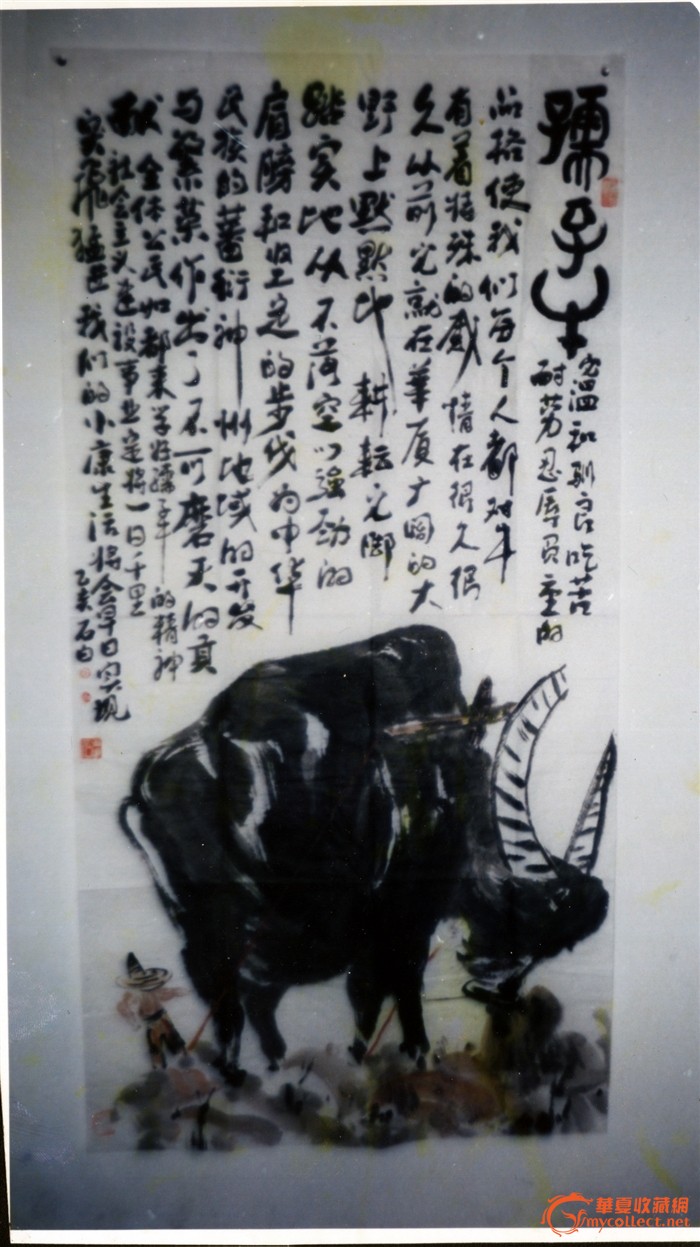 孺子牛
温和驯良吃苦
耐劳忍辱负重的
品格使我们每个人都对牛
有着特殊的感情在很久很
久从前它就在华厦广阔的大
野上默默地耕耘它脚
踏实地从不落空以强劲的
肩膀和坚定的步伐为中华
民族的蕃衍神州地域的开发
与繁荣作出了不可磨灭的貢
献 全体公民如都来学好孺子牛的精神
社会主义建设事业定将一日千里
突飛猛进我们的小康生活将会早日实现
乙亥石
華夏收藏網
mycollect.net